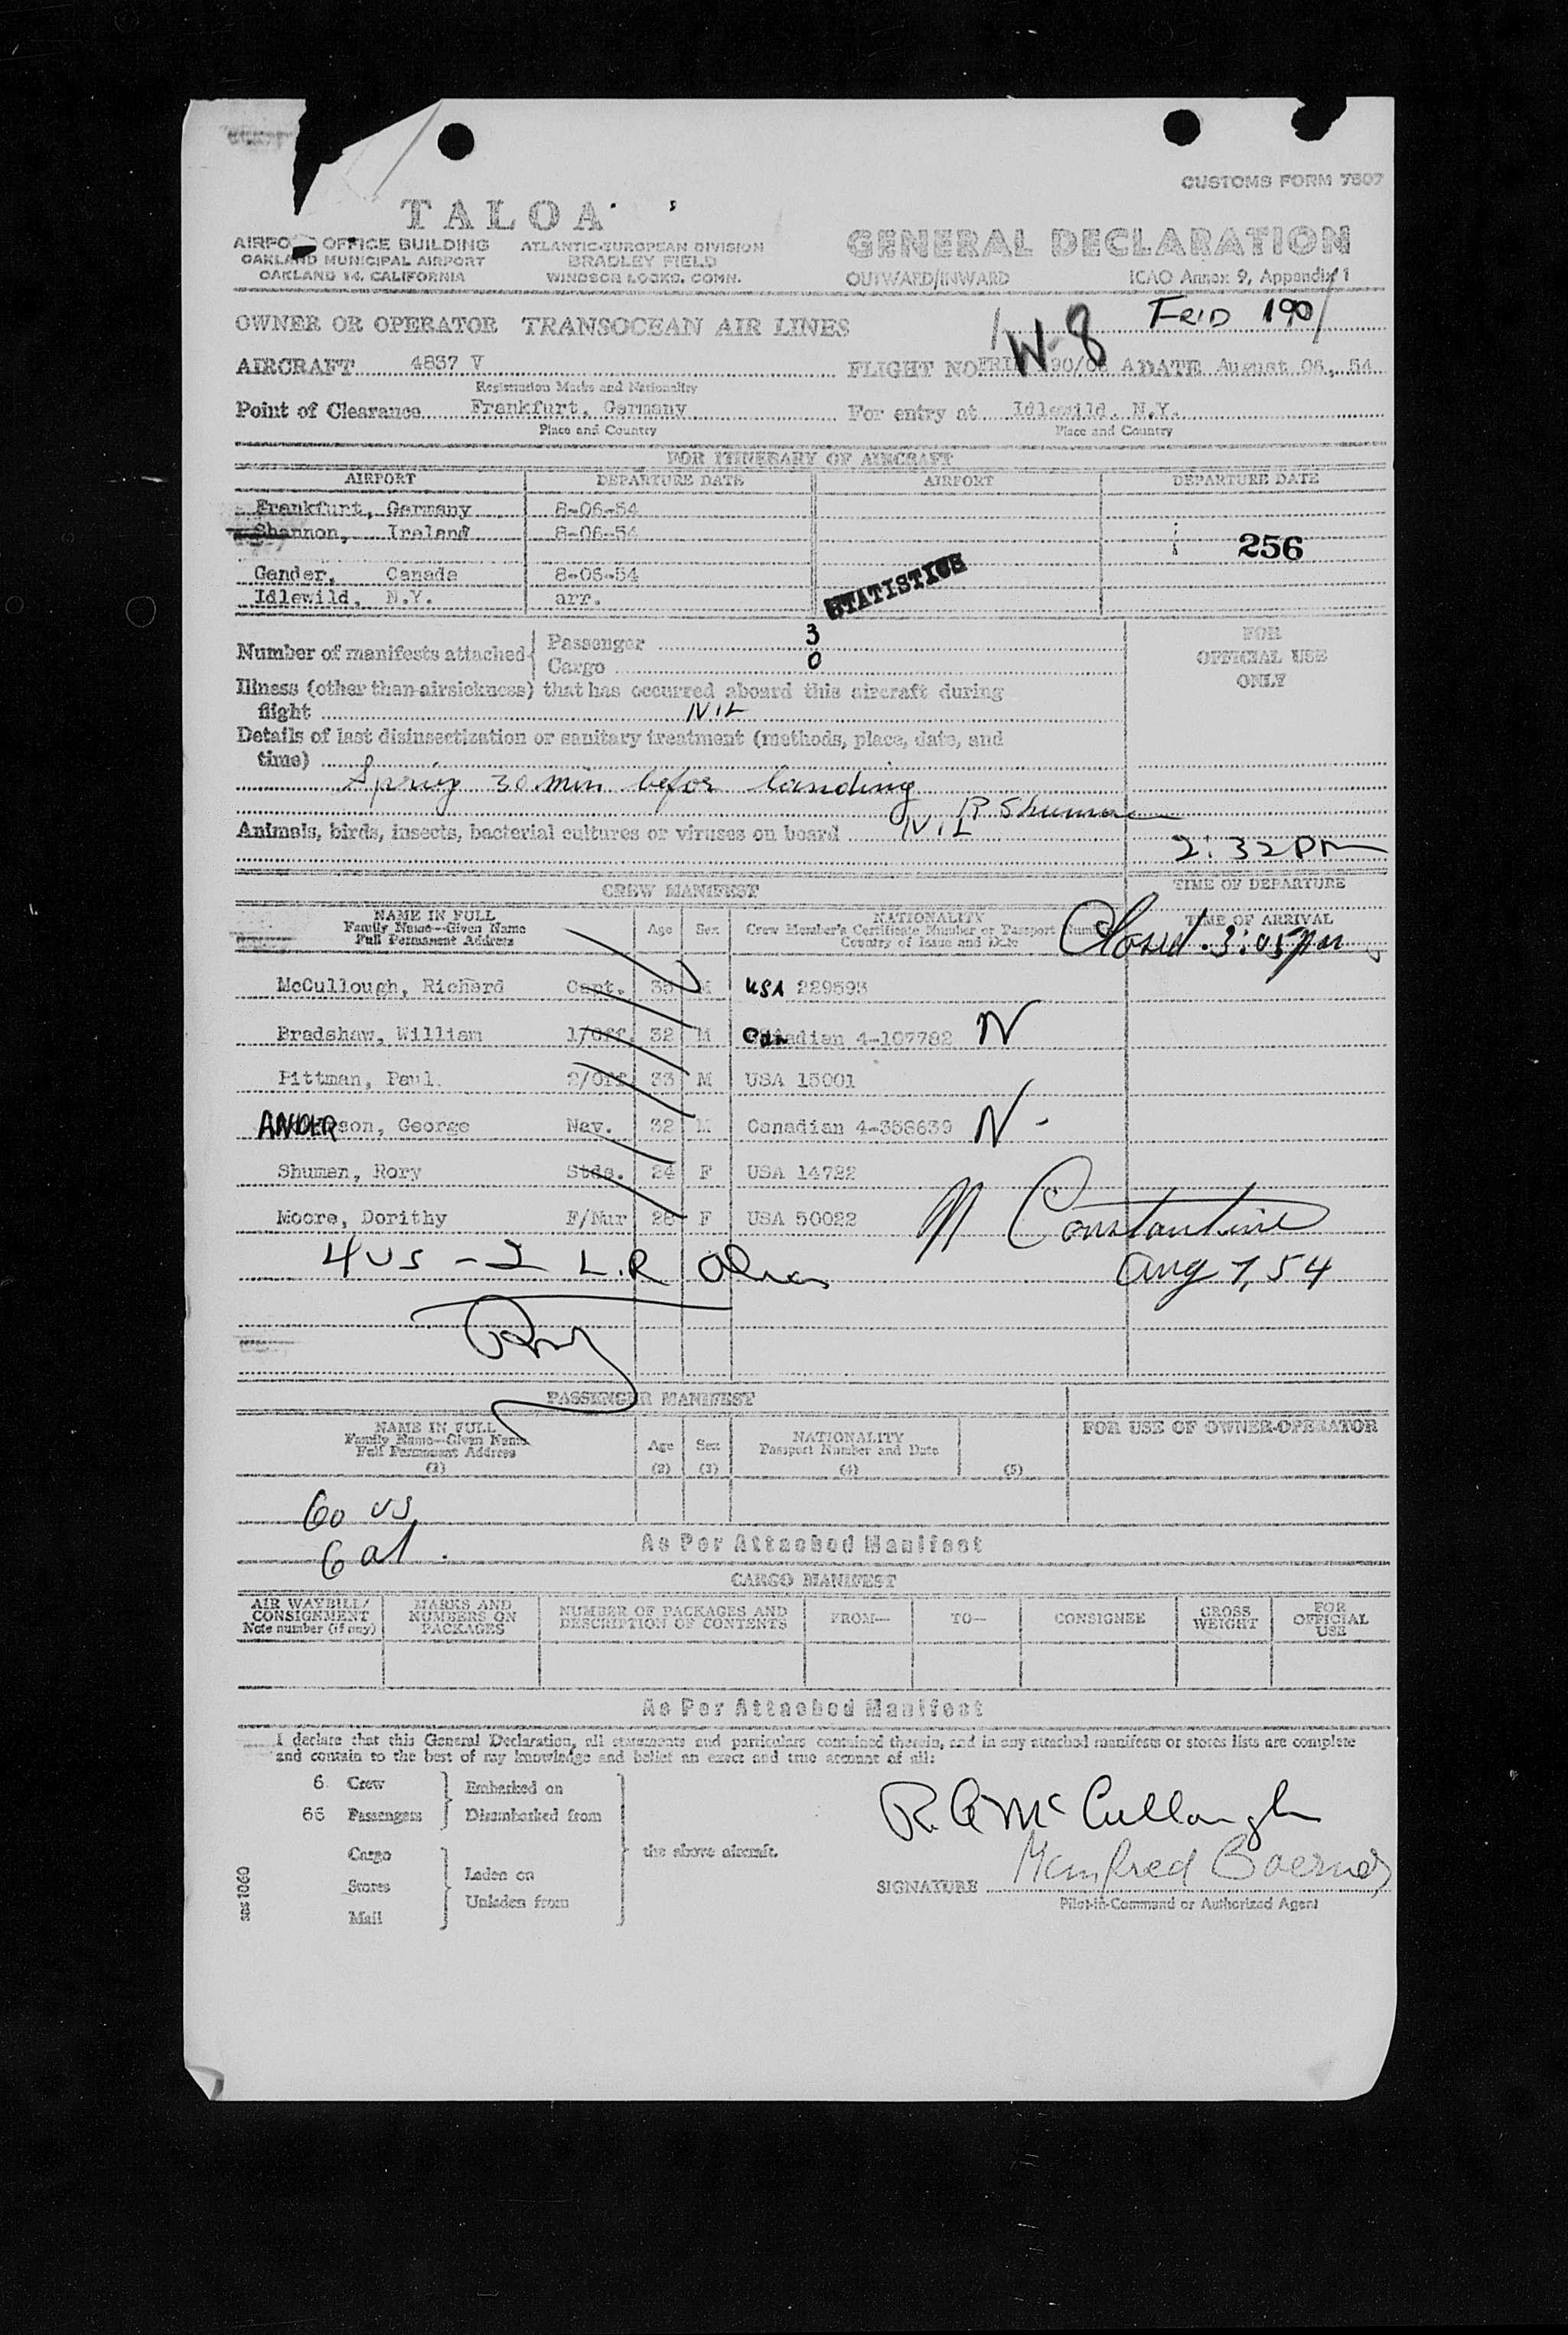 CUSTOMS FORM 7507
TALOA
AIRPORT OFFICE BUILDING
OAKLAND MUNICIPAL AIRPORT
OAKLAND 14, CALIFORNIA
ATLANTIC-EUROPEAN DIVISION
BRADLEY FIELD
WINDSOR LOCKS, CONN.
GENERAL DECLARATION
OUTWARD/INWARD ICAO Annex 9, Appendix 1
FRID 190/
OWNER OR OPERATOR TRANSOCEAN AIR LINES
W-8
AIRCRAFT 4837 V FLIGHT NO FRI 90/06 A DATE August 06, 54
Registration Marks and Nationality
Point of Clearance Frankfurt, Germany For entry at Idlewild, N.Y.
Place and Country Place and Country
FOR ITINERARY OF AIRCRAFT
AIRPORT DEPARTURE DATE AIRPORT DEPARTURE DATE
Frankfurt, Germany 8-06-54
Shannon, Ireland 8-06-54
256
Gander, Canada 8-06-54
STATISTICS
Idlewild, N.Y. arr.
Number of manifests attached Passenger 3
Cargo 0
FOR OFFICIAL USE ONLY
Illness (other than airsickness) that has occurred aboard this aircraft during
flight NIL
Details of last disinsectization or sanitary treatment (methods, place, date, and
time)
Spriy 30 min befor landing
R Shuman
Animals, birds, insects, bacterial cultures or viruses on board NIL
2:32 PM
CREW MANIFEST TIME OF DEPARTURE
NAME IN FULL
Family Name—Given Name
Full Permanent Address
Age Sex
NATIONALITY
Crew Member's Certificate Number or Passport Number
Country of Issue and Date
TIME OF ARRIVAL
Closed 3:05 pm
McCullough, Richard Capt. 35 M USA 229593
Bradshaw, William 1/Off. 32 M Canadian 4-107782 N
Pittman, Paul 2/Off 33 M USA 15001
ANDERson, George Nav. 32 M Canadian 4-358639 N -
Shuman, Rory Stds. 24 F USA 14722
Moore, Dorithy F/Nur 28 F USA 50022
N Constantine
4 US - 2 L.R
Aug 7, 54
PASSENGER MANIFEST
NAME IN FULL
Family Name—Given Name
Full Permanent Address
(1)
Age
(2)
Sex
(3)
NATIONALITY
Passport Number and Date
(4) (5)
FOR USE OF OWNER-OPERATOR
60 US
6 al.
As Per Attached Manifest
CARGO MANIFEST
AIR WAYBILL/
CONSIGNMENT
Note number (if any)
MARKS AND
NUMBERS ON
PACKAGES
NUMBER OF PACKAGES AND
DESCRIPTION OF CONTENTS
FROM— TO— CONSIGNEE
GROSS
WEIGHT
FOR
OFFICIAL
USE
As Per Attached Manifest
I declare that this General Declaration, all statements and particulars contained therein, and in any attached manifests or stores lists are complete
and contain to the best of my knowledge and belief an exact and true account of all:
6 Crew
66 Passengers
Embarked on
Disembarked from
Cargo
Stores
Mail
Laden on
Unladen from
the above aircraft.
R.G. McCullough
Manfred Boerner
SIGNATURE
Pilot-in-Command or Authorized Agent
sas1060